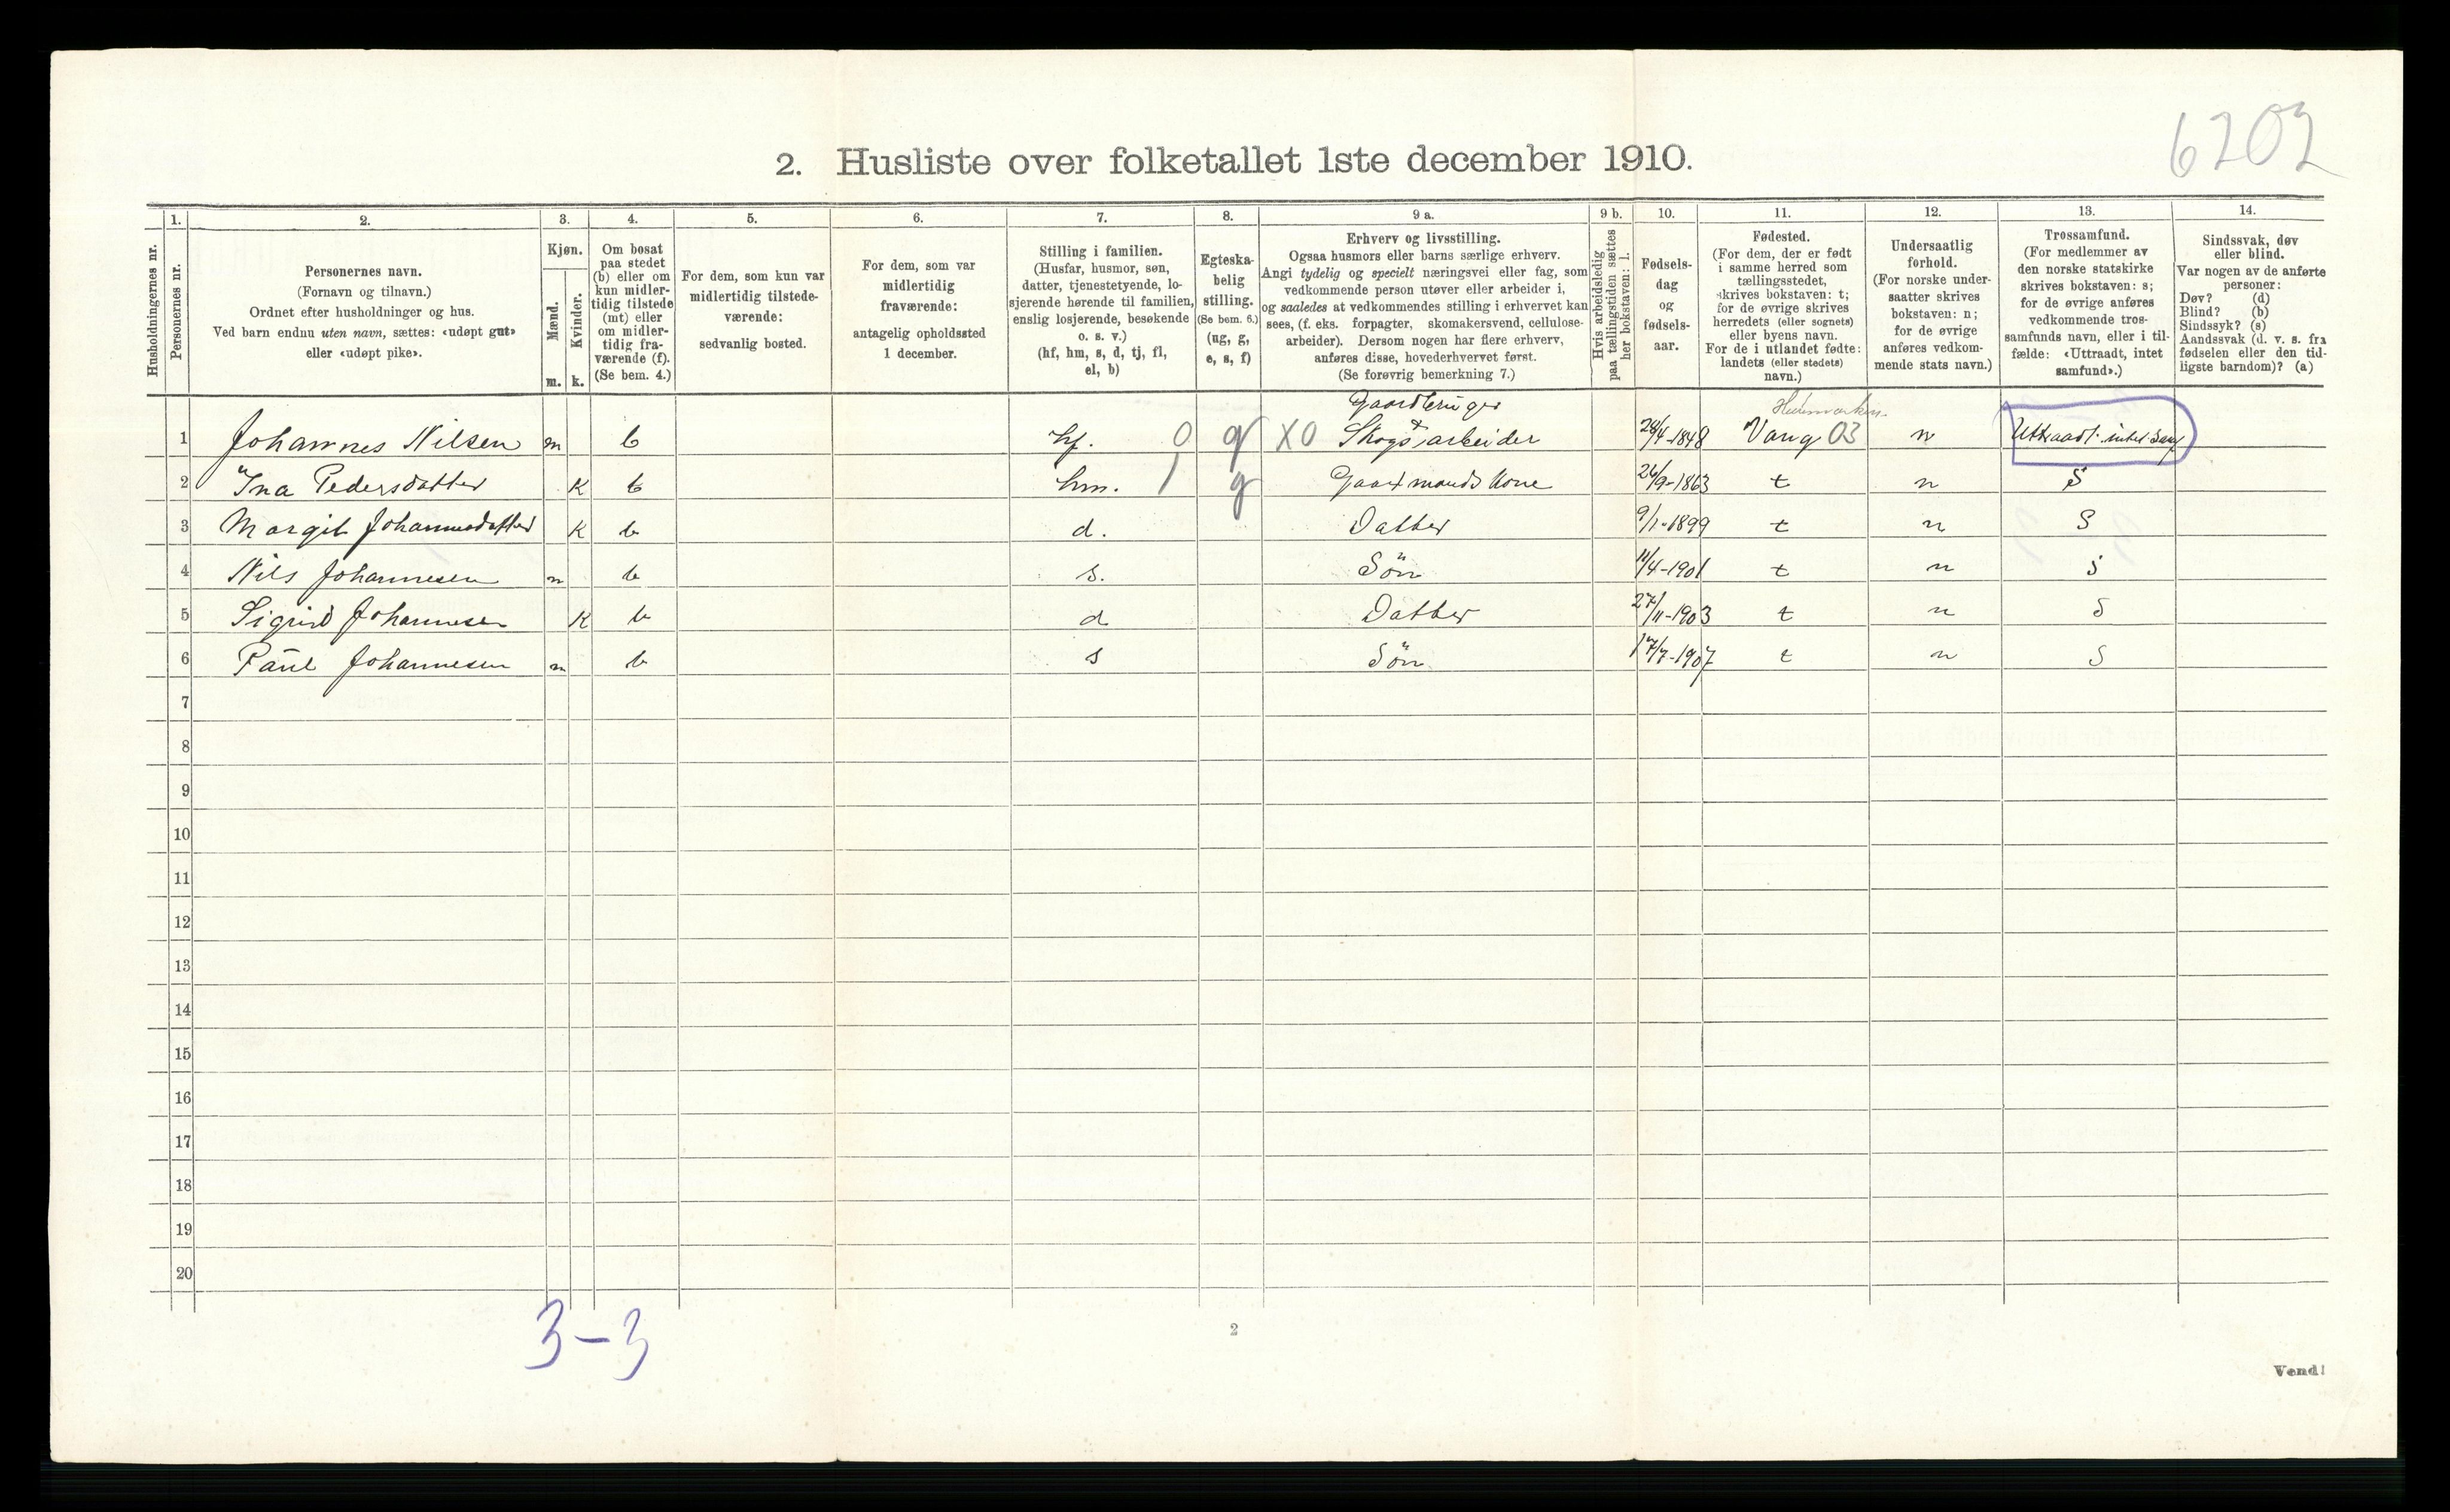 6202
2. Husliste over folketallet 1ste december 1910.
Husholdningernes nr.
1.
Personernes nr.
2.
Personernes navn.
(Fornavn og tilnavn.)
Ordnet efter husholdninger og hus.
Ved barn endnu uten navn, sættes: «udøpt gut»
eller «udøpt pike».
3.
Kjøn.
Mænd.
m.
Kvinder.
k.
4.
Om bosat
paa stedet
(b) eller om
kun midler-
tidig tilstede
(mt) eller
om midler-
tidig fra-
værende (f).
(Se bem. 4.)
5.
For dem, som kun var
midlertidig tilstede-
værende:
sedvanlig bosted.
6.
For dem, som var
midlertidig
fraværende:
antagelig opholdssted
1 december.
7.
Stilling i familien.
(Husfar, husmor, søn,
datter, tjenestetyende, lo-
sjerende hørende til familien,
enslig losjerende, besøkende
o. s. v.)
(hf, hm, s, d, tj, fl,
el, b)
8.
Egteska-
belig
stilling.
(Se bem. 6.)
(ug, g,
e, s, f)
9 a.
Erhverv og livsstilling.
Ogsaa husmors eller barns særlige erhverv.
Angi tydelig og specielt næringsvei eller fag, som
vedkommende person utøver eller arbeider i,
og saaledes at vedkommendes stilling i erhvervet kan
sees, (f. eks. forpagter, skomakersvend, cellulose-
arbeider). Dersom nogen har flere erhverv,
anføres disse, hovederhvervet først.
(Se forøvrig bemerkning 7.)
9 b.
Hvis arbeidsledig
paa tællingstiden sættes
her bokstaven: l.
10.
Fødsels-
dag
og
fødsels-
aar.
11.
Fødested.
(For dem, der er født
i samme herred som
tællingsstedet,
skrives bokstaven: t;
for de øvrige skrives
herredets (eller sognets)
eller byens navn.
For de i utlandet fødte:
landets (eller stedets)
navn.)
12.
Undersaatlig
forhold.
(For norske under-
saatter skrives
bokstaven: n;
for de øvrige
anføres vedkom-
mende stats navn.)
13.
Trossamfund.
(For medlemmer av
den norske statskirke
skrives bokstaven: s;
for de øvrige anføres
vedkommende tros-
samfunds navn, eller i til-
fælde: «Uttraadt, intet
samfund».)
14.
Sindssvak, døv
eller blind.
Var nogen av de anførte
personer:
Døv? (d)
Blind? (b)
Sindssyk? (s)
Aandssvak (d. v. s. fra
fødselen eller den tid-
ligste barndom)? (a)
Gaardbruger Hedemarken
1 Johannes Nilsen m b hf. 0 g X0 Skogsarbeider 28/4-1848 Vang 03 n Uttraadt intet Samf
2 Ina Pedersdatter K b hm. 1 g Gaardmands Kone 26/9-1863 t n S
3 Margit Johannesdatter K b d. Datter 9/1-1899 t n S
4 Nils Johannesen m b s. Søn 11/4-1901 t n s
5 Sigrid Johannesen K b d Datter 27/11-1903 t n S
6 Paul Johannesen m b s Søn 17/7-1907 t n S
7
8
9
10
11
12
13
14
15
16
17
18
19
20
3-3
2
Vend!